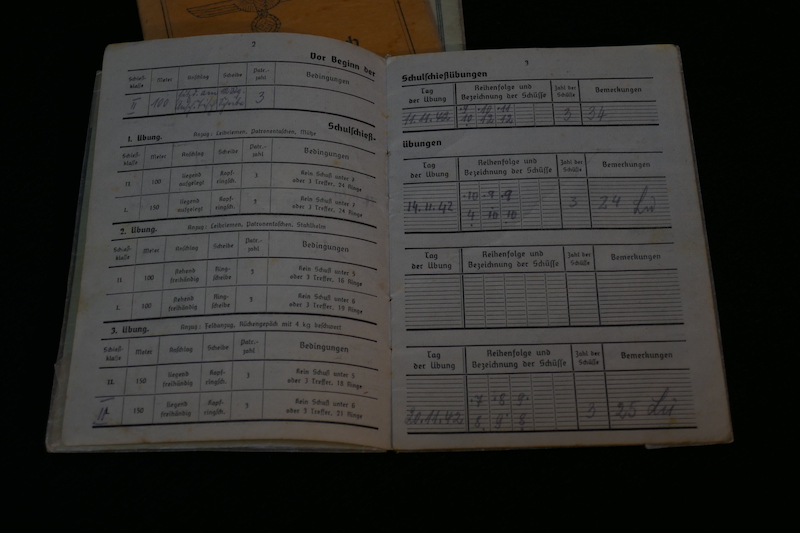 2
Vor Beginn der
Schieß-klasse Meter Anschlag Scheibe Patr.-zahl Bedingungen
II 100 3
Schulschieß-
1. Übung. Anzug: Leibriemen, Patronentaschen, Mütze
Schieß-klasse Meter Anschlag Scheibe Patr.-zahl Bedingungen
II. 100 liegend aufgelegt Kopf-ringsch. 3 Kein Schuß unter 7 oder 3 Treffer, 24 Ringe
I. 150 liegend aufgelegt Kopf-ringsch. 3 Kein Schuß unter 7 oder 3 Treffer, 24 Ringe
2. Übung. Anzug: Leibriemen, Patronentaschen, Stahlhelm
Schieß-klasse Meter Anschlag Scheibe Patr.-zahl Bedingungen
II. 100 stehend freihändig Ring-scheibe 3 Kein Schuß unter 5 oder 3 Treffer, 16 Ringe
I. 100 stehend freihändig Ring-scheibe 3 Kein Schuß unter 6 oder 3 Treffer, 19 Ringe
3. Übung. Anzug: Feldanzug, Rückengepäck mit 4 kg beschwert
Schieß-klasse Meter Anschlag Scheibe Patr.-zahl Bedingungen
II. 150 liegend freihändig Kopf-ringsch. 3 Kein Schuß unter 5 oder 3 Treffer, 18 Ringe
150 liegend freihändig Kopf-ringsch. 3 Kein Schuß unter 6 oder 3 Treffer, 21 Ringe
3
Schulschießübungen
Tag der Übung Reihenfolge und Bezeichnung der Schüsse Zahl der Schüsse Bemerkungen
9 10 11
11.11.42 10 12 12 3 34
übungen
Tag der Übung Reihenfolge und Bezeichnung der Schüsse Zahl der Schüsse Bemerkungen
10 9 9
14.11.42 4 10 10 3 24
Tag der Übung Reihenfolge und Bezeichnung der Schüsse Zahl der Schüsse Bemerkungen
Tag der Übung Reihenfolge und Bezeichnung der Schüsse Zahl der Schüsse Bemerkungen
7 8 9
8 9 8 3 25